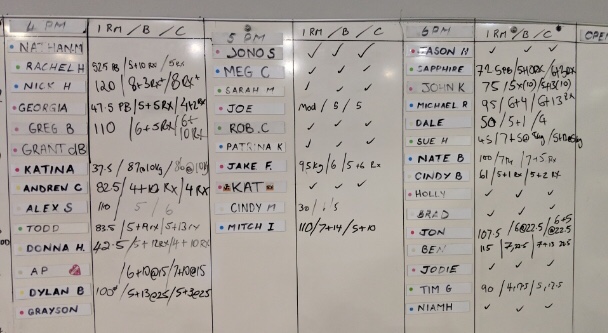 4 PM 1RM/B/C
NATHAN.M
RACHEL H 52.5 PB/5+10RX/5RX
NICK H 120/8+3RX+/8RX+
GEORGIA 47.5 PB/5+5RX/4+2RX
GREG B 110/6+5RX/6+10RX
GRANT dB
KATINA 37.5/87@10kg/86@10k
ANDREW C 82.5/4+12 RX/4 RX
ALEX S 110/5/6
TODD 83.5/5+9RX/5+13RX
DONNA H. 42.5/5+12RX/4+10RX
AP /6+10@15/7+10@15
DYLAN B 100/5+13@22.5/5+3@22.5
GRAYSON
5 PM 1RM/B/C
JONO S ✓ ✓ ✓
MEG C ✓ ✓ ✓
SARAH M ✓ ✓ ✓
JOE Mod/5/5
ROB.C ✓ ✓ ✓
PATRINA K ✓ ✓ ✓
JAKE F. 95kg/6/5+6 Rx
KAT ✓ ✓ ✓
CINDY M 30/
MITCH I 110/7+14/5+10
6PM 1RM/B/C
JASON H ✓ ✓ ✓
SAPPHIRE
JOHN K 75/5+
MICHAEL R 95/6+9/6+13 RX
DALE 50/5+1/4
SUE H 45/7+5@
NATE B 100/7RX/7+5 RX
CINDY B 61/5+1RX/5+2 RX
HOLLY ✓ ✓ ✓
BRAD
JON 107.5/6@22.5/6+5@22.5
BEN 115/7,22.5/7+13 22.5
JODIE ✓ ✓ ✓
TIM G 90/4,17.5/5,17.5
NIAMH ✓ ✓ ✓
OPEN